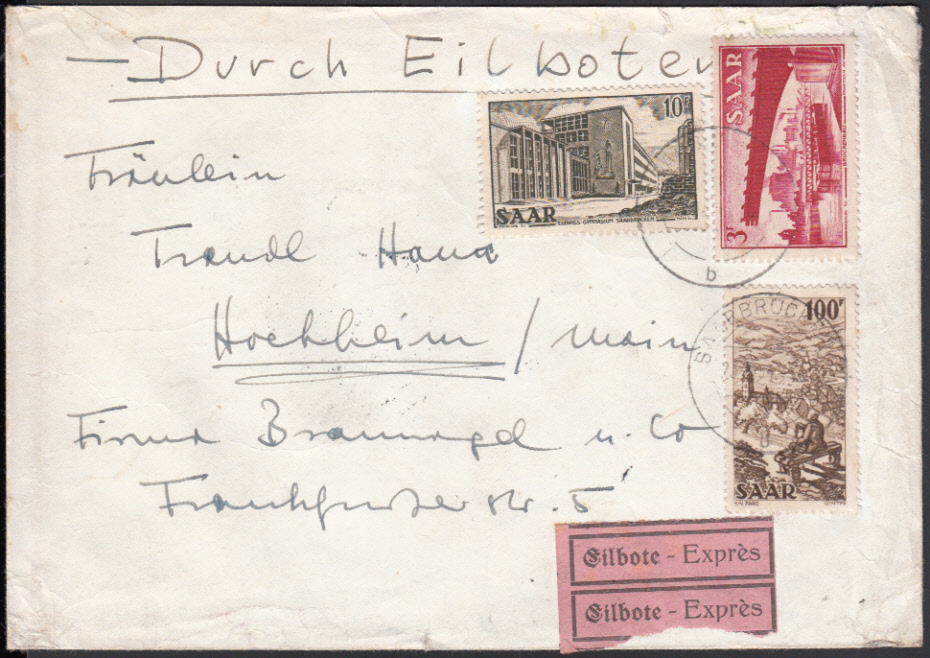 — Durch Eilboten
10F
SAAR
LUDWIGS GYMNASIUM SAARBRÜCKEN
SAAR
3F
b
Fräulein
Traudl Hana
Hochheim / Main
Firma Braunagel u. Co
Frankfurter Str. 5
SAARBRÜCKEN
100F
SAAR
Eilbote - Exprès
Eilbote - Exprès